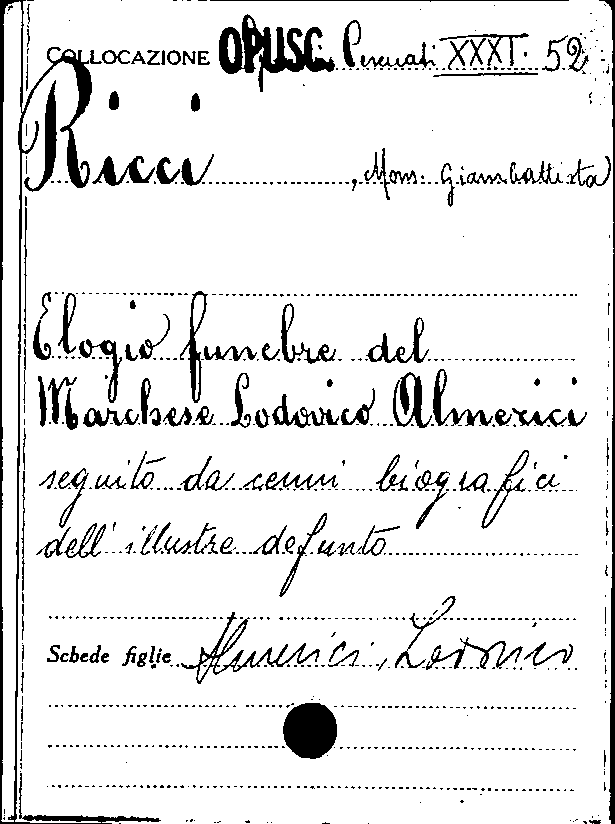 COLLOCAZIONE OPUSC. Peruzzi XXXI. 52
Ricci, Mons. Giambattista
Elogio funebre del
Marchese Lodovico Almerici
seguito da cenni biografici
dell' illustre defunto
Schede figlie Almerici, Lodovico